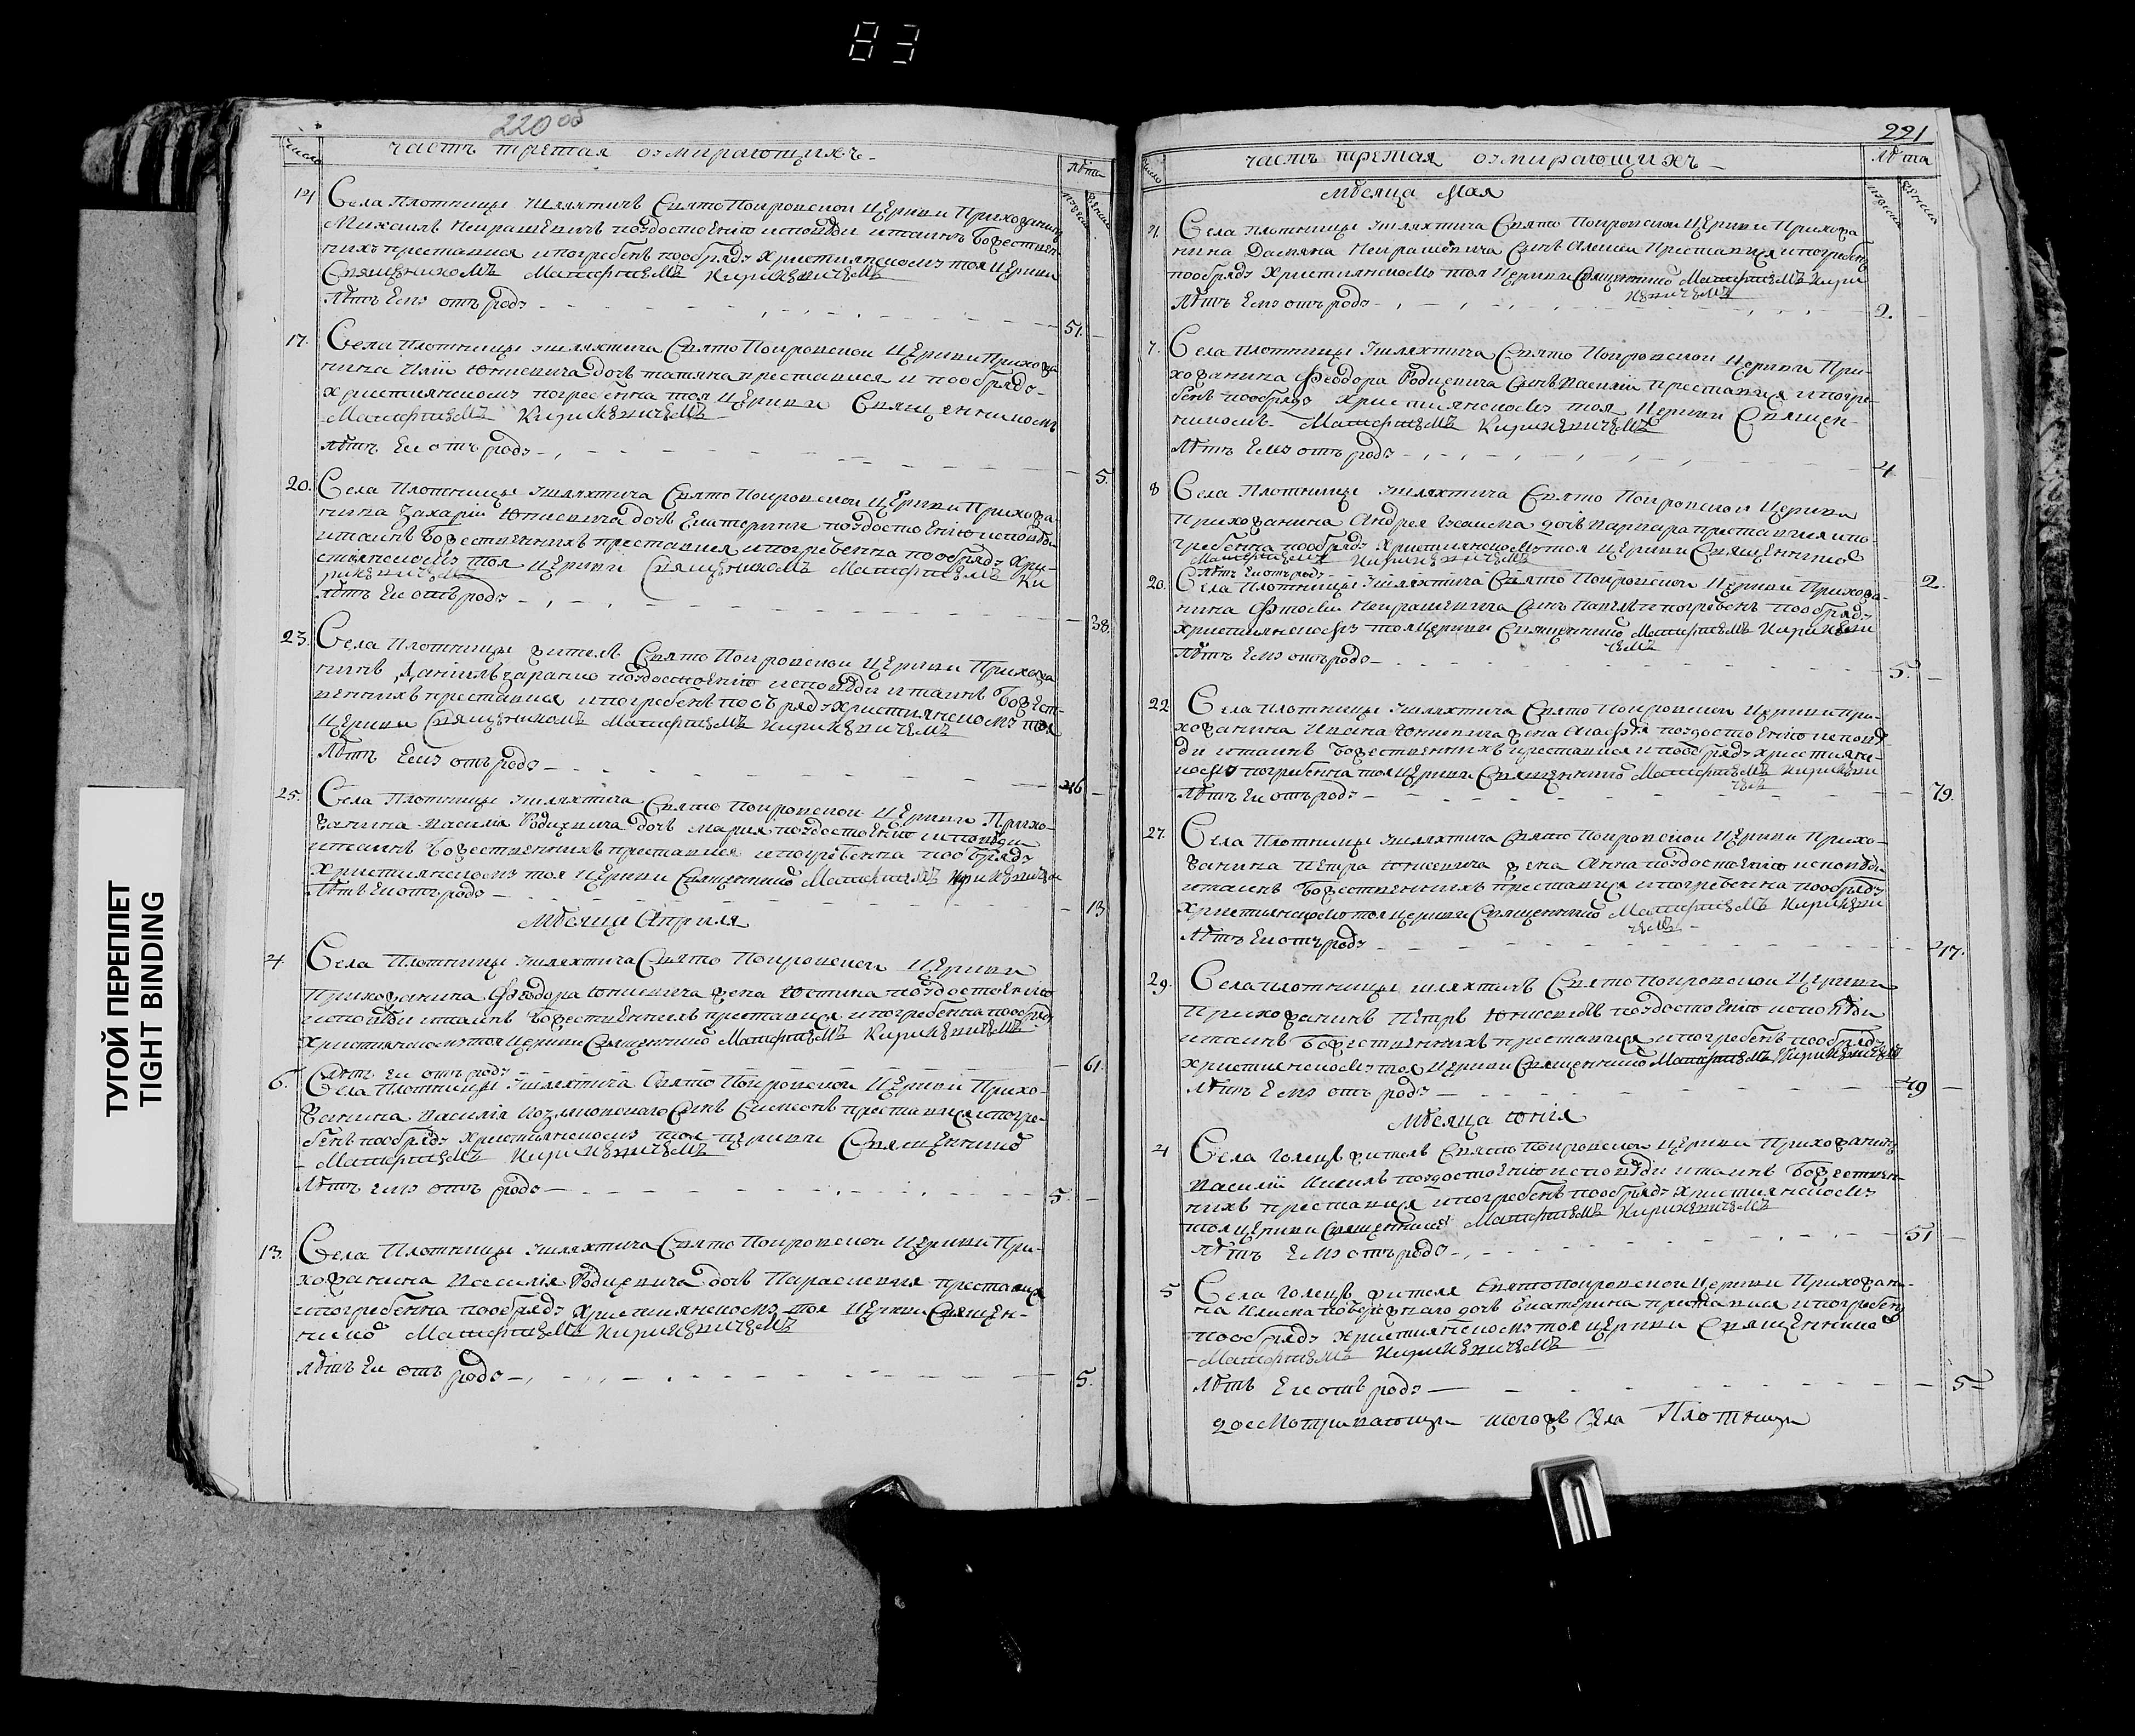 83
ТУГОЙ ПЕРЕПЛЕТ
TIGHT BINDING
220 об
число
часть третая о умирающихъ
лѣта
14 Села Плотницы шляхтичъ Свято Покровской Церкви Прихожанинъ
Михаилъ Некрашевичъ по удостоенію исповѣди и таинъ Божествен
нихъ преставися и погребенъ по обряду Християнскому тоя Церкви
Священикомъ Матфтеемъ Кирикевичемъ
Лѣтъ Ему отъ роду 51.
17. Села Плотницы шляхтича Свято Покровской Церкви Прихожа
нина Иліи Юшевича дочь татяна преставися и по обряду
християнскому погребенна тоя Церкви Священникомъ
Матфтеемъ Кирикевичемъ
лѣтъ Ей отъ роду 5.
20. Села Плотницы шляхтича Свято Покровской Церкви Прихожа
нина Захарія Юшевича дочь Екатерина по удостоенію исповѣди
и таинъ Божественнихъ преставися и погребенна по обряду Хри
стиянскому тоя Церкви Священикомъ Матфтеемъ Ки
рикевичемъ
лѣтъ Ей отъ роду 38.
23. Села Плотницы житель Свято Покровской Церкви Прихожа
нинъ Даніилъ по удостоенію исповѣди и таинъ Божест
веннихъ преставися и погребенъ по обряду християнскому тоя
Церкви Священикомъ Матфтеемъ Кирикевичемъ
Лѣтъ Ему отъ роду 46
25. Села Плотницы шляхтича Свято Покровской Церкви Прихо
жанина Василія Родкевича дочь Мария по удостоенію исповѣди
и таинъ Божественнихъ преставися и погребенна по обряду
Християнскому тоя Церкви Священико Матфтеемъ Кирикевичем
Лѣтъ Ей отъ роду 13
Мѣсяца Априля
4. Села Плотницы шляхтича Свято Покровской Церкви
Прихожанина Феодора Юшевича жена Юстина по удостоенію
исповѣди и таинъ Божественнихъ преставися и погребенна по обряду
Християнскому тоя Церкви Священико Матфтеемъ Кирикевичемъ
Лѣтъ Ей отъ роду 61.
6. Села Плотницы шляхтича Свято Покровской Церкви Прихо
жанина Василія Козляковскаго Синъ Симеонъ преставися и погре
бенъ по обряду Християнскому тоя церкви Священнико
Матфтеемъ Кирикевичемъ
Лѣтъ Ему отъ роду 5.
13. Села Плотницы шляхтича Свято Покровской Церкви При
хожанина Василія Родкевича дочь Параскевия преставися
и погребенна по обряду Християнскому тоя Церкви Священ
нико Матфтеемъ Кирикевичемъ
лѣтъ Ей отъ роду 5.
221
число
часть третая о умирающихъ
Лѣта
Мѣсяца Мая
4. Села плотницы шляхтича Свято Покровской Церкви Прихожа
нина Дамяна Некрашевича Синъ Алексей Преставися и погребенъ
по обряду Християнскому тоя Церкви Священнико Матфтеемъ Кири
кевичемъ
Лѣтъ Ему отъ роду 2.
7. Села плотницы шляхтича Свято Покровской Церкви При
хожанина Феодора Родкевича Синъ Василій преставися и погре
бенъ по обряду Християнскому тоя Церкви Священ
никомъ Матфтеемъ Кирикевичемъ
Лѣтъ Ему отъ роду 4
8 Села Плотницы шляхтича Свято Покровской Церкви
Прихожанина Андрея дочь Варвара преставися и по
гребенна по обряду Християнскому тоя Церкви Священнико
Матфтеемъ Кирикевичемъ
Лѣтъ Ей отъ роду 2.
20. Села Плотницы шляхтича Свято Покровской Церкви Прихожа
нина Некрашевича Синъ Павелъ и погребенъ по обряду
християнскому тоя Церкви Священнико Матфтеемъ Кирикеви
чемъ
Лѣтъ Ему отъ роду 5.
22 Села Плотницы шляхтича Свято Покровской Церкви При
хожанина Ивана Юшевича жена Агафія по удостоенію исповѣ
ди и таинъ Божественнихъ преставися и по обряду християн
скому погребенна тоя Церкви Священнико Матфтеемъ Кирикеви
чемъ
Лѣтъ Ей отъ роду 79.
27. Села Плотницы шляхтича Свято Покровской Церкви Прихо
жанина Петра Юшевича жена Анна по удостоенію исповѣди
и таинъ Божественнихъ преставися и погребенна по обряду
Християнскому тоя Церкви Священнико Матфтеемъ Кирикеви
чемъ
Лѣтъ Ей отъ роду 47.
29. Села плотницы шляхтичъ Свято Покровской Церкви
Прихожанинъ Петръ Юшевичъ по удостоенію исповѣди
и таинъ Божественнихъ преставися и погребенъ по обряду
християнскому тоя Церкви Священнико Матфтеемъ Кирикевичемъ
Лѣтъ Ему отъ роду 49
Мѣсяца Юнія
4 Села Голецъ житель Свято Покровской Церкви Прихожанинъ
Василій по удостоенію исповѣди и таинъ Божествен
нихъ преставися и погребенъ по обряду християнскому
тоя Церкви Священнико Матфтеемъ Кирикевичемъ
Лѣтъ Ему отъ роду 51
5 Села Голецъ жителя Свято Покровской Церкви Прихожани
на дочь Екатерина преставися и погребенна
по обряду християнскому тоя Церкви Священнико
Матфтеемъ Кирикевичемъ
Лѣтъ Ей отъ роду 5
досмотривающи тогожъ Села Плотницы